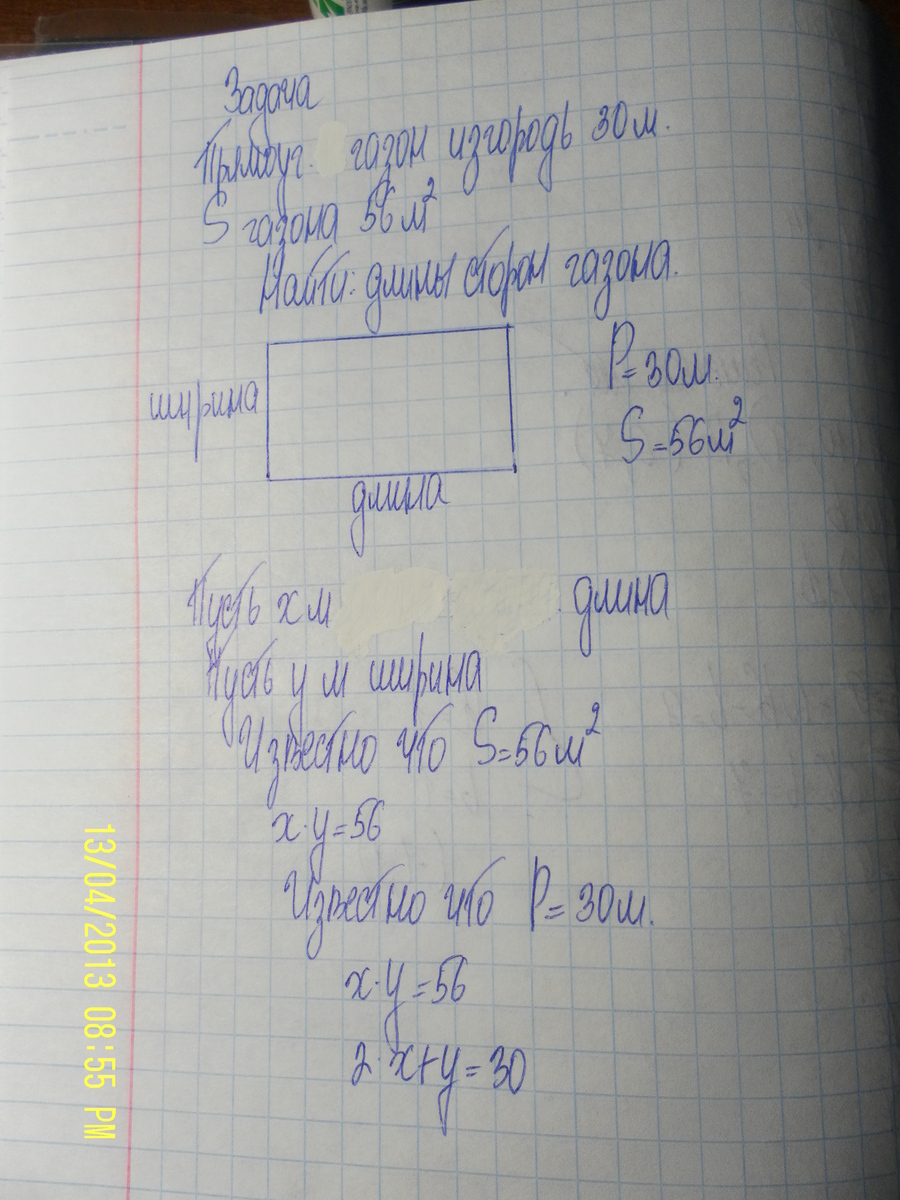 Задача
Прямоуг. газон изгородь 30м.
S газона 56 м²
Найти: длины сторон газона.
ширина
P=30м.
S=56м²
длина
Пусть x м длина
Пусть y м ширина
Известно что S=56м²
x·y=56
Известно что P=30м.
x·y=56
2·x+y=30
13/04/2013 08:55 PM